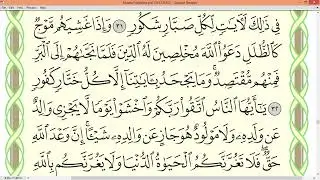 فِي ذَٰلِكَ لَآيَٰتٍ لِّكُلِّ صَبَّارٍ شَكُورٍ ٣١ وَإِذَا غَشِيَهُم مَّوْجٌ
كَٱلظُّلَلِ دَعَوُا۟ ٱللَّهَ مُخْلِصِينَ لَهُ ٱلدِّينَ فَلَمَّا نَجَّىٰهُمْ إِلَى ٱلْبَرِّ
فَمِنْهُم مُّقْتَصِدٌ وَمَا يَجْحَدُ بِـَٔايَٰتِنَآ إِلَّا كُلُّ خَتَّارٍ كَفُورٍ ٣٢
يَٰٓأَيُّهَا ٱلنَّاسُ ٱتَّقُوا۟ رَبَّكُمْ وَٱخْشَوْا۟ يَوْمًا لَّا يَجْزِي وَالِدٌ
عَن وَلَدِهِۦ وَلَا مَوْلُودٌ هُوَ جَازٍ عَن وَالِدِهِۦ شَيْـًٔا إِنَّ وَعْدَ ٱللَّهِ
حَقٌّ فَلَا تَغُرَّنَّكُمُ ٱلْحَيَوٰةُ ٱلدُّنْيَا وَلَا يَغُرَّنَّكُم بِٱللَّهِ